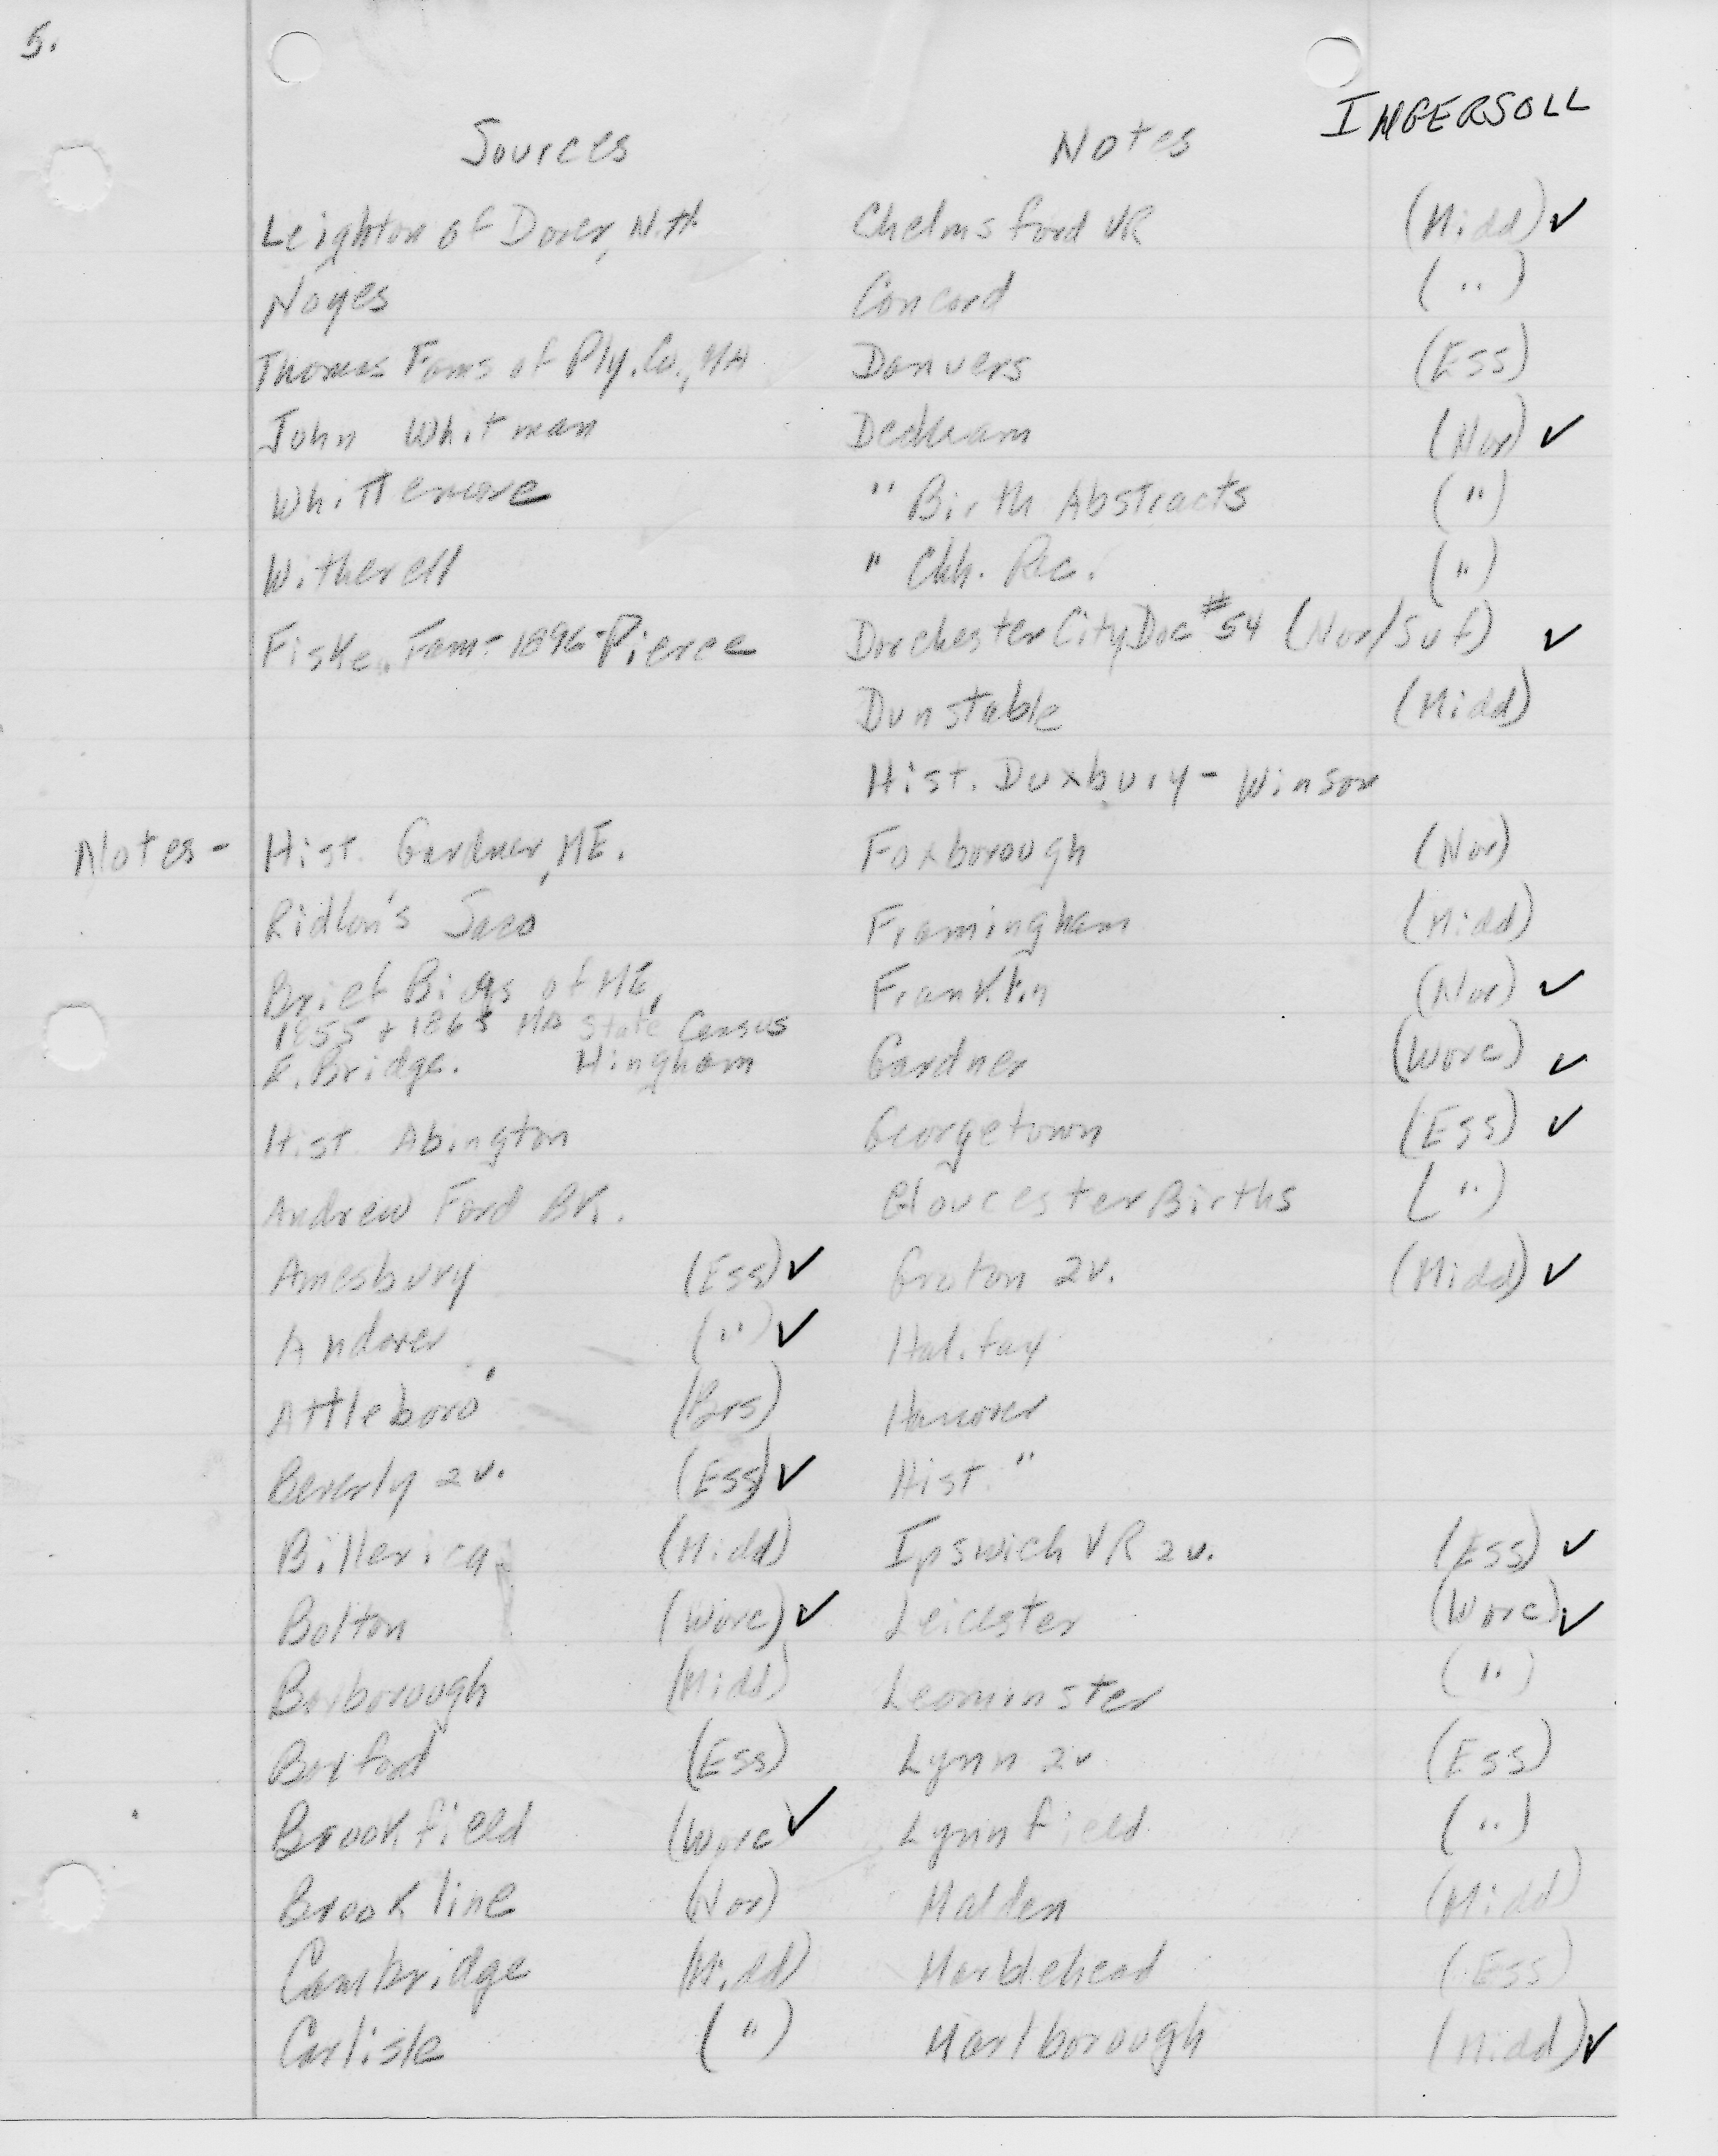 5.
INGERSOLL
Sources
Notes
Leighton of Dover, N.H.
Noyes
Thomas Fams of Ply. Co., MA
John Whitman
Whittemore
Witherell
Fiske Fam - 1896 - Pierce
Notes - Hist. Gardner, ME.
Ridlon's Saco
Brief Biogs of ME,
1855 + 1865 MA State Census
E. Bridge. Hingham
Hist. Abington
Andrew Ford BK.
Amesbury (Ess) ✓
Andover (") ✓
Attleboro' (Brs)
Beverly 2v. (Ess) ✓
Billerica (Midd)
Bolton (Worc) ✓
Boxborough (Midd)
Boxford (Ess)
Brookfield (Worc ✓
Brookline (Nor)
Cambridge (Midd)
Carlisle (")
Chelmsford VR (Midd) ✓
Concord (")
Danvers (Ess)
Dedham (Nor) ✓
" Birth Abstracts (")
" Chh. Rec. (")
Dorchester City Doc #54 (Nor/Suf) ✓
Dunstable (Midd)
Hist. Duxbury - Winsor
Foxborough (Nor)
Framingham (Midd)
Franklin (Nor) ✓
Gardner (Worc) ✓
Georgetown (Ess) ✓
Gloucester Births (")
Groton 2v. (Midd) ✓
Halifax
Hanover
Hist. "
Ipswich VR 2v. (Ess) ✓
Leicester (Worc) ✓
Leominster (")
Lynn 2v (Ess)
Lynnfield (")
Malden (Midd)
Marblehead (Ess)
Marlborough (Midd) ✓